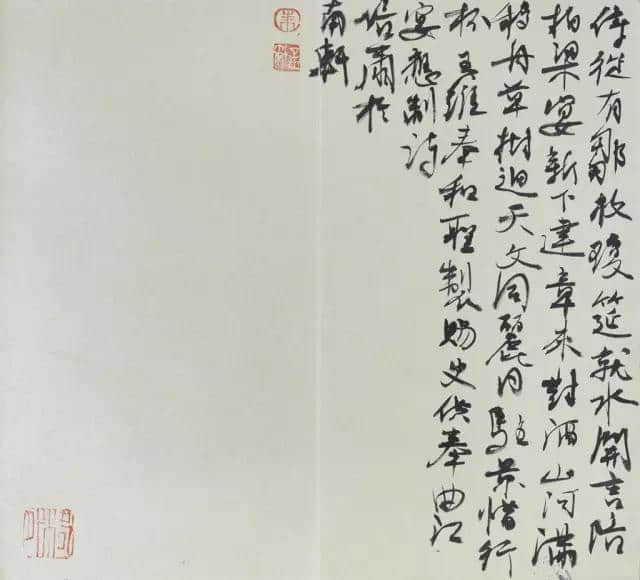 侍從有鄒枚瓊筵就水開言陪
柏梁宴新下建章來對酒山河滿
移舟草樹迴天文同麗日駐景惜行
杯王維奉和聖製賜史供奉曲江
宴應制詩
於
南軒